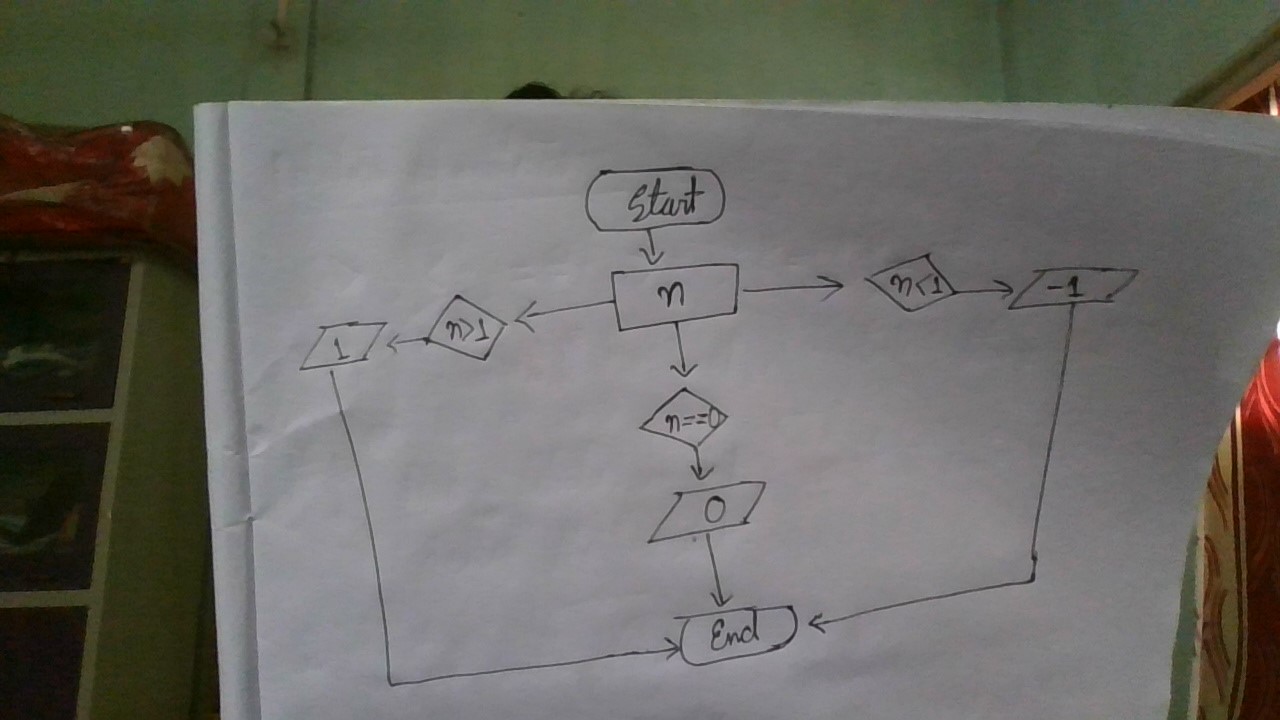 Start
n
n<1
-1
n>1
1
n==0
0
End